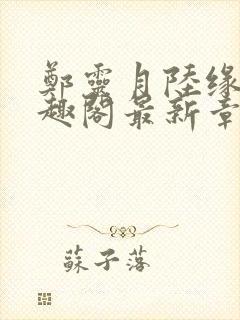 鄭靈月陸緣
趣閣最新章
蘇子落